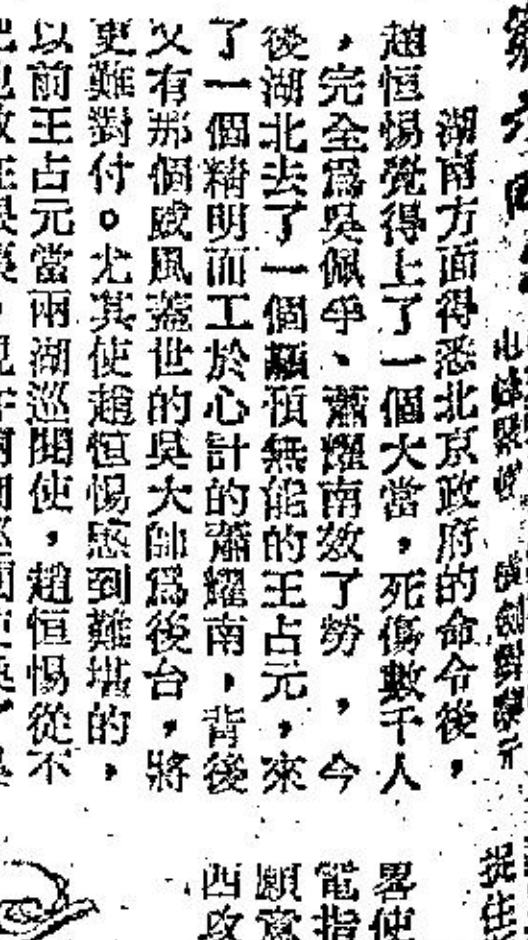 湖南方面得悉北京政府的命令後，
趙恒惕覺得上了一個大當，死傷數千人
，完全爲吳佩孚、蕭耀南效了勞，今
後湖北去了一個顢頇無能的王占元，來
了一個精明而工於心計的蕭耀南，背後
又有那個威風蓋世的吳大帥爲後台，將
更難對付。尤其使趙恒惕感到難堪的，
以前王占元當兩湖巡閱使，趙恒惕從不
捉住
畧使
電指
願意
西攻